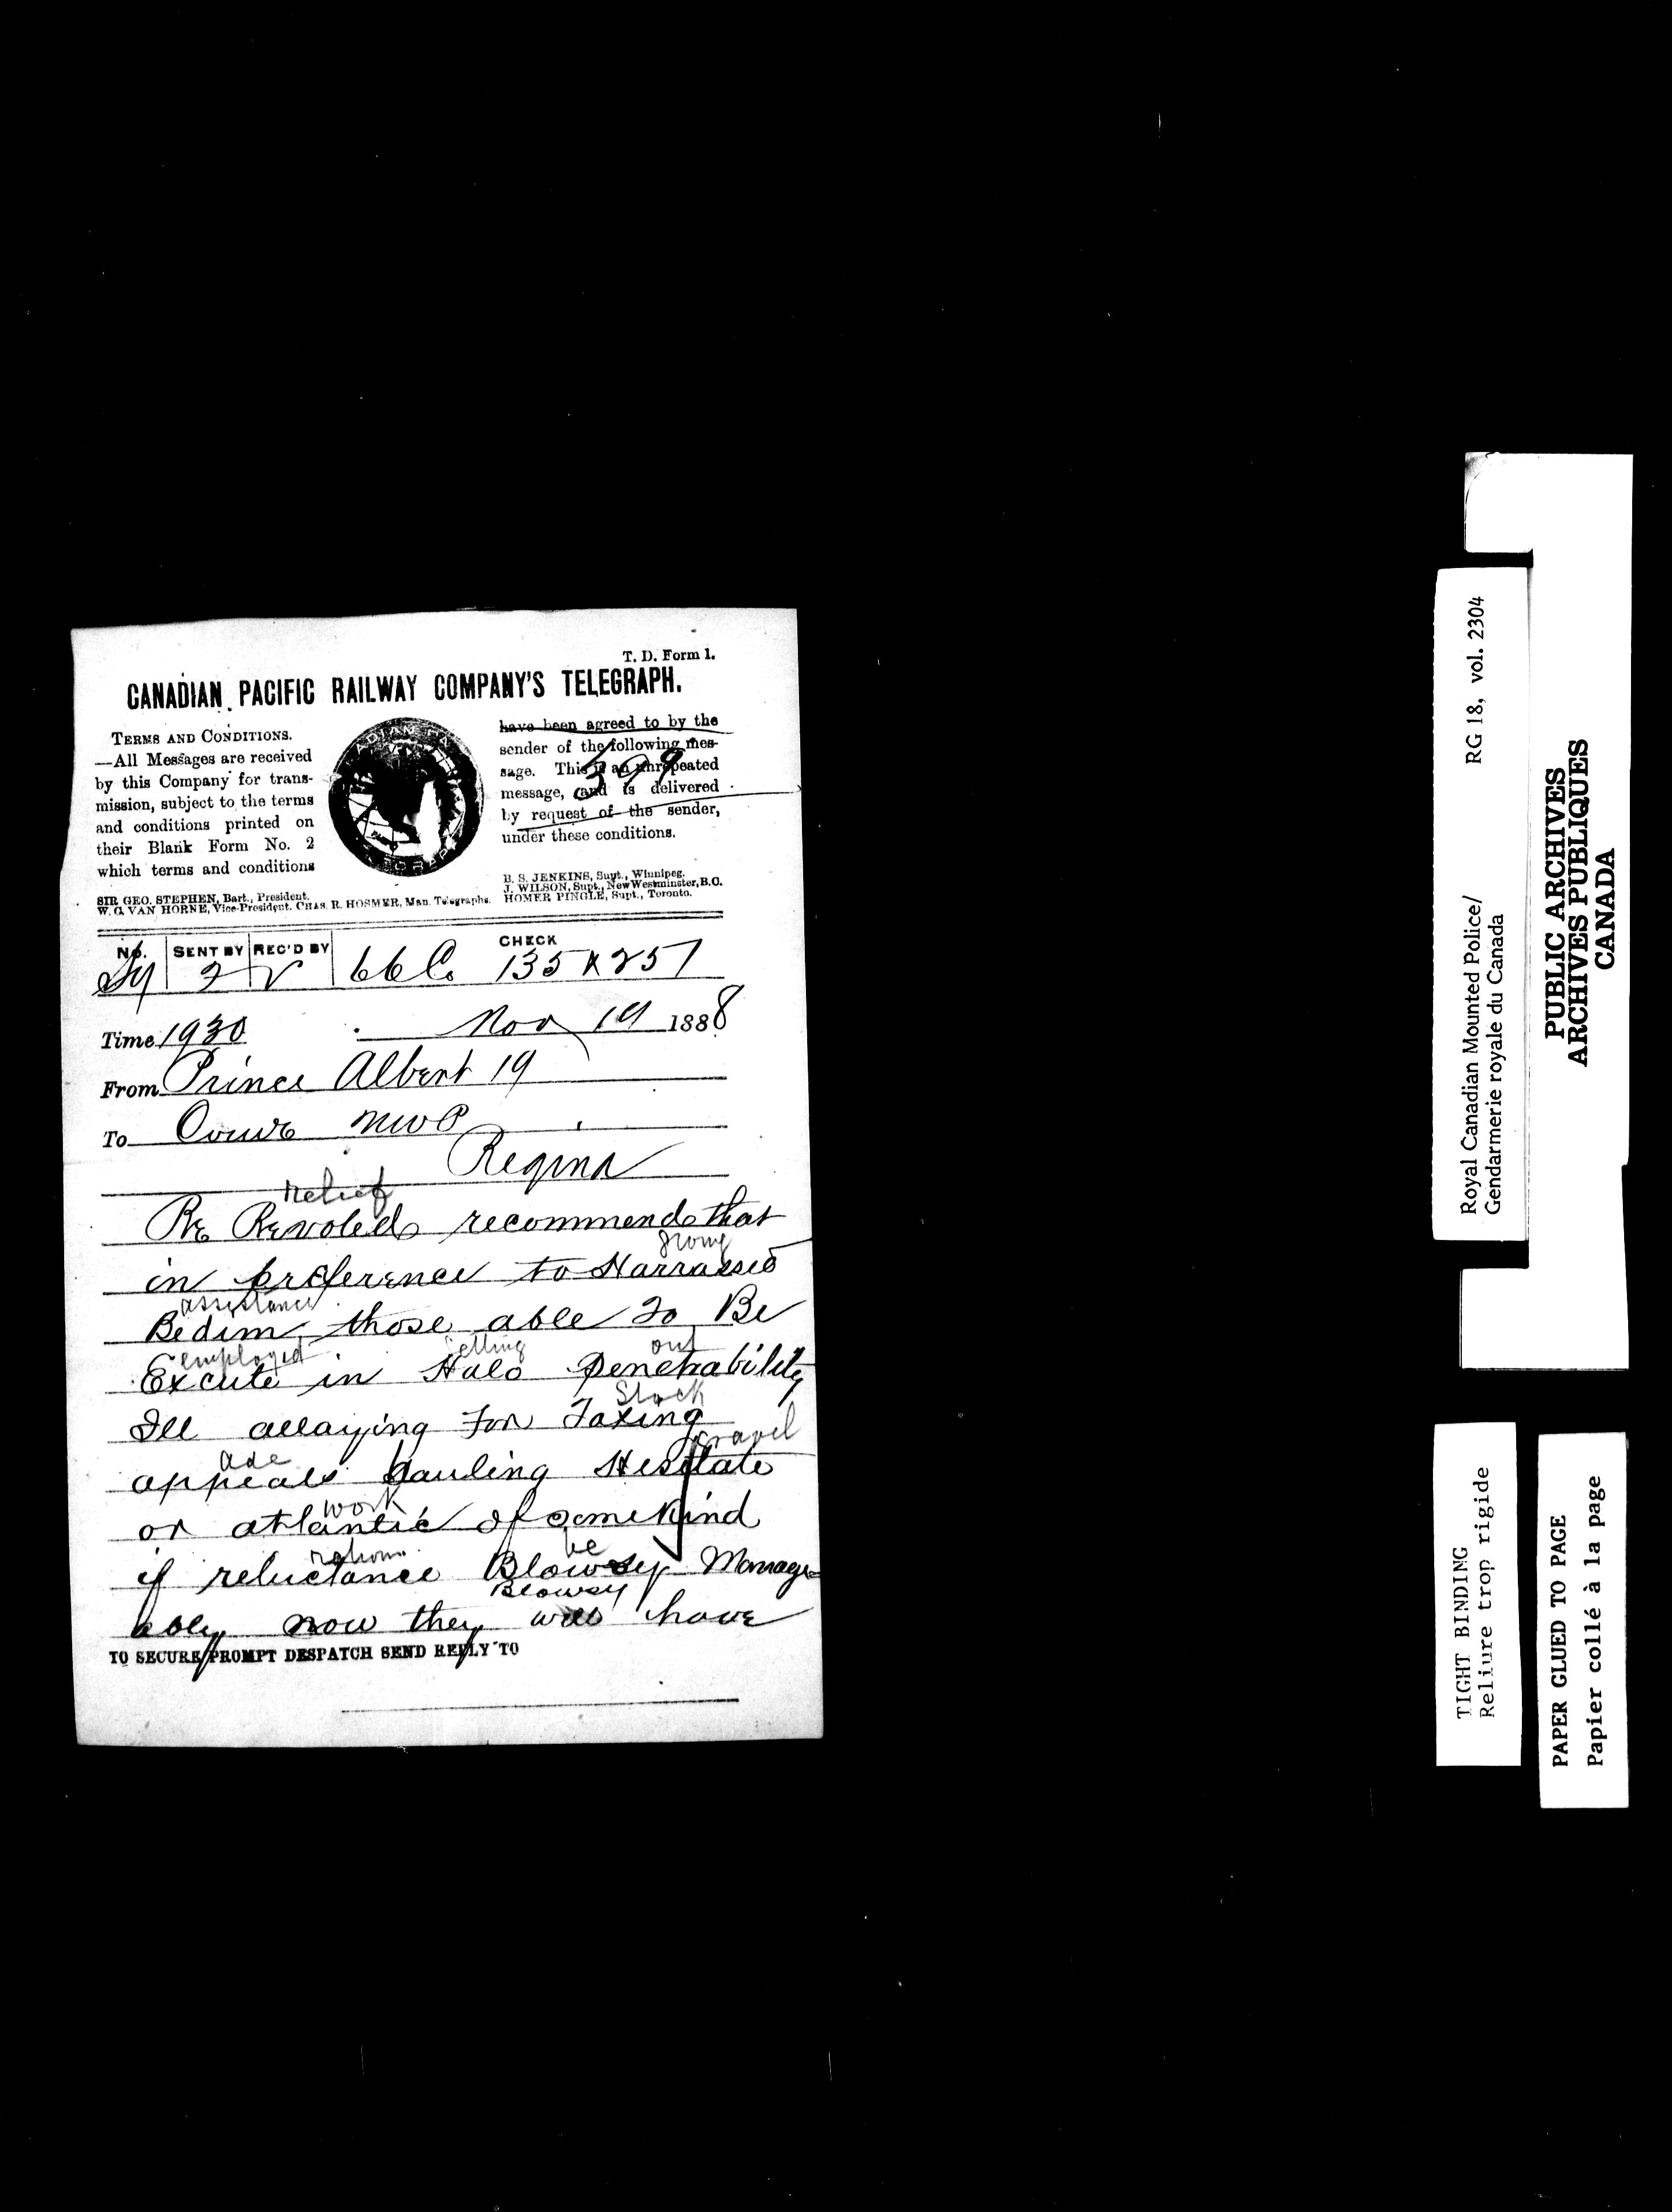 T. D. Form 1.
CANADIAN PACIFIC RAILWAY COMPANY'S TELEGRAPH.
TERMS AND CONDITIONS.
—All Messages are received
by this Company for trans-
mission, subject to the terms
and conditions printed on
their Blank Form No. 2
which terms and conditions
have been agreed to by the
sender of the following mes-
sage. This is an unrepeated
message, and is delivered
by request of the sender,
under these conditions.
B. S. JENKINS, Supt., Winnipeg.
J. WILSON, Supt., New Westminster, B.C.
HOMER PINGLE, Supt., Toronto.
SIR GEO. STEPHEN, Bart., President.
W. C. VAN HORNE, Vice-President. CHAS. R. HOSMER, Man. Telegraphs.
No. SENT BY REC'D BY CHECK
135 257
Time 1930 Nov 19 1888
From Prince Albert 19
To NWP
Regina
relief
Re recommends that
giving
in preference to Harrassed
assistance
Bedim those able to Be
employed out
Excute in Halo Penetrability
Stock
Ill allaying for Taxing
gravel
ade
appeals hauling Hesitate
work
or atlantic of some kind
be
if reluctance Blowsy Manage
Blowsy
ably now they will have
TO SECURE PROMPT DESPATCH SEND REPLY TO
Royal Canadian Mounted Police/ RG 18, vol. 2304
Gendarmerie royale du Canada
PUBLIC ARCHIVES
ARCHIVES PUBLIQUES
CANADA
TIGHT BINDING
Reliure trop rigide
PAPER GLUED TO PAGE
Papier collé à la page